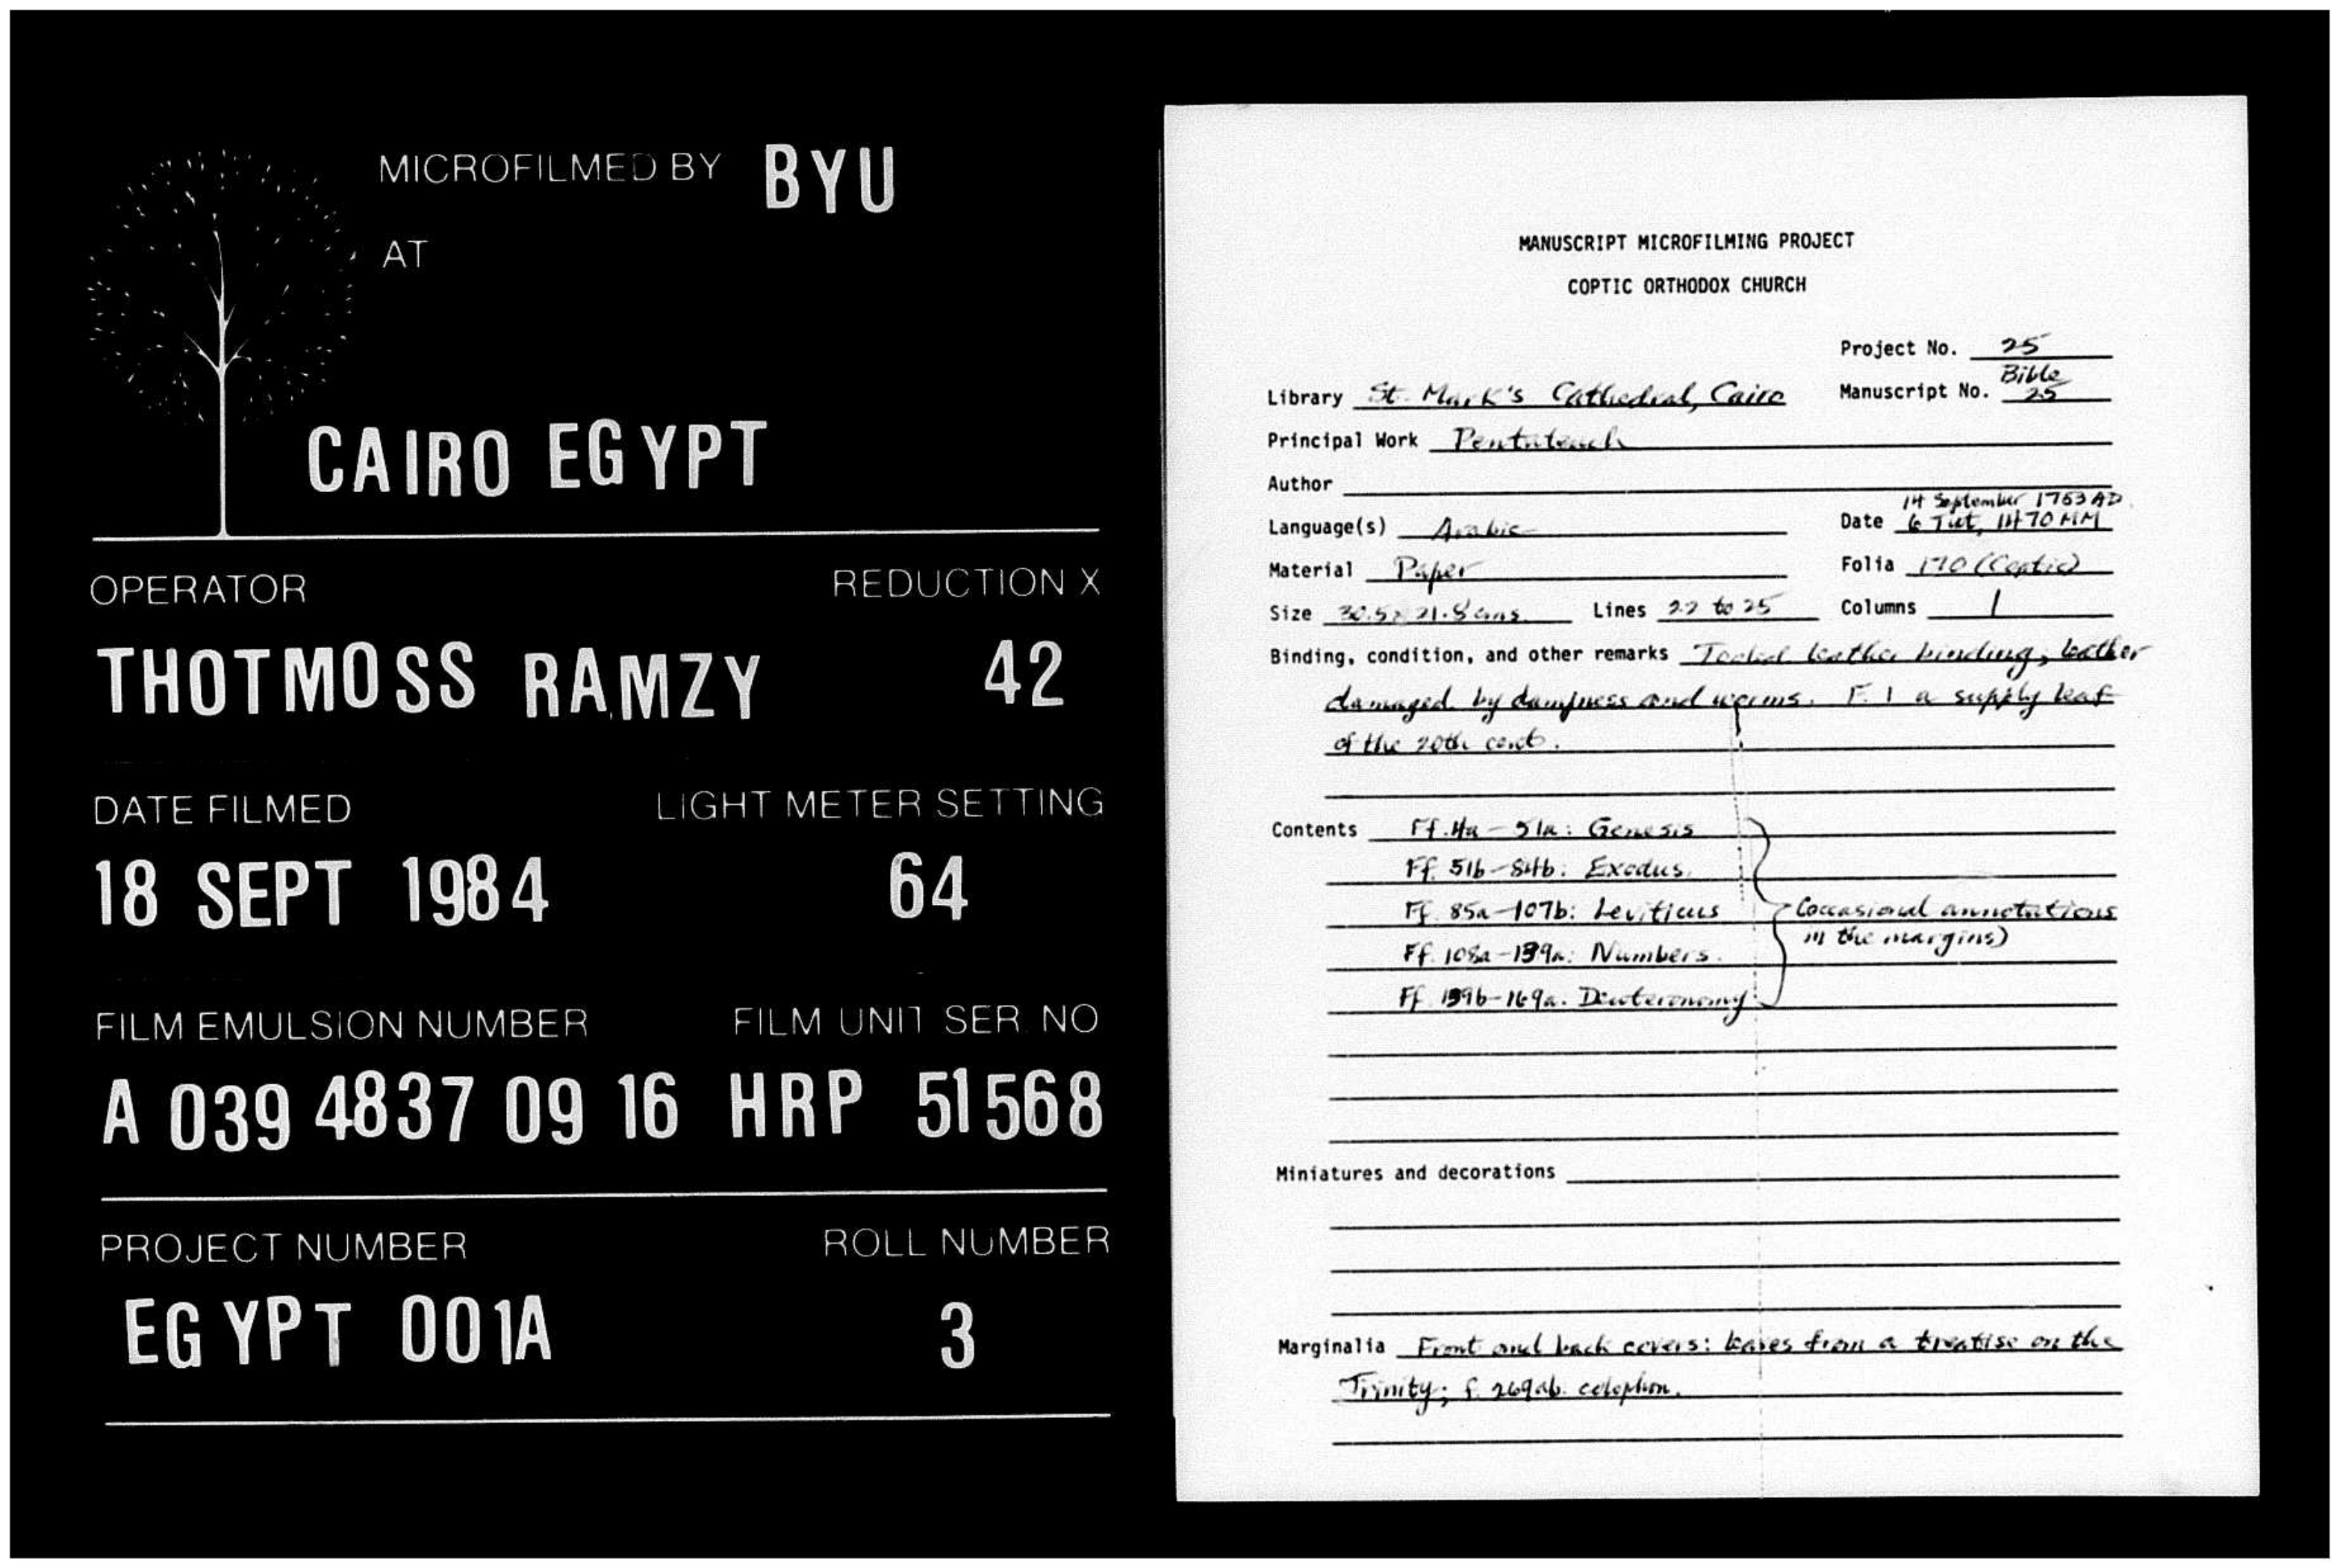 MICROFILMED BY BYU
AT
CAIRO EGYPT
OPERATOR REDUCTION X
THOTMOSS RAMZY 42
DATE FILMED LIGHT METER SETTING
18 SEPT 1984 64
FILM EMULSION NUMBER FILM UNIT SER. NO
A 039 4837 09 16 HRP 51568
PROJECT NUMBER ROLL NUMBER
EGYPT 001A 3
MANUSCRIPT MICROFILMING PROJECT
COPTIC ORTHODOX CHURCH
Project No. 25
Library St. Mark's Cathedral, Cairo Manuscript No. Bible 25
Principal Work Pentateuch
Author
14 September 1753 AD
Language(s) Arabic Date 6 Tut, 1470 MM
Material Paper Folia 170 (Coptic)
Size 30.5 x 21.8 cms. Lines 22 to 25 Columns 1
Binding, condition, and other remarks Tooled leather binding, leather
damaged by dampness and worms. F. 1 a supply leaf
of the 20th cent.
Contents Ff. 4a - 51a: Genesis
Ff. 51b-84b: Exodus
Ff. 85a-107b: Leviticus (occasional annotations
in the margins)
Ff. 108a-139a: Numbers.
Ff. 139b-169a. Deuteronomy
Miniatures and decorations
Marginalia Front and back covers: leaves from a treatise on the
Trinity; f. 269ab. colophon.